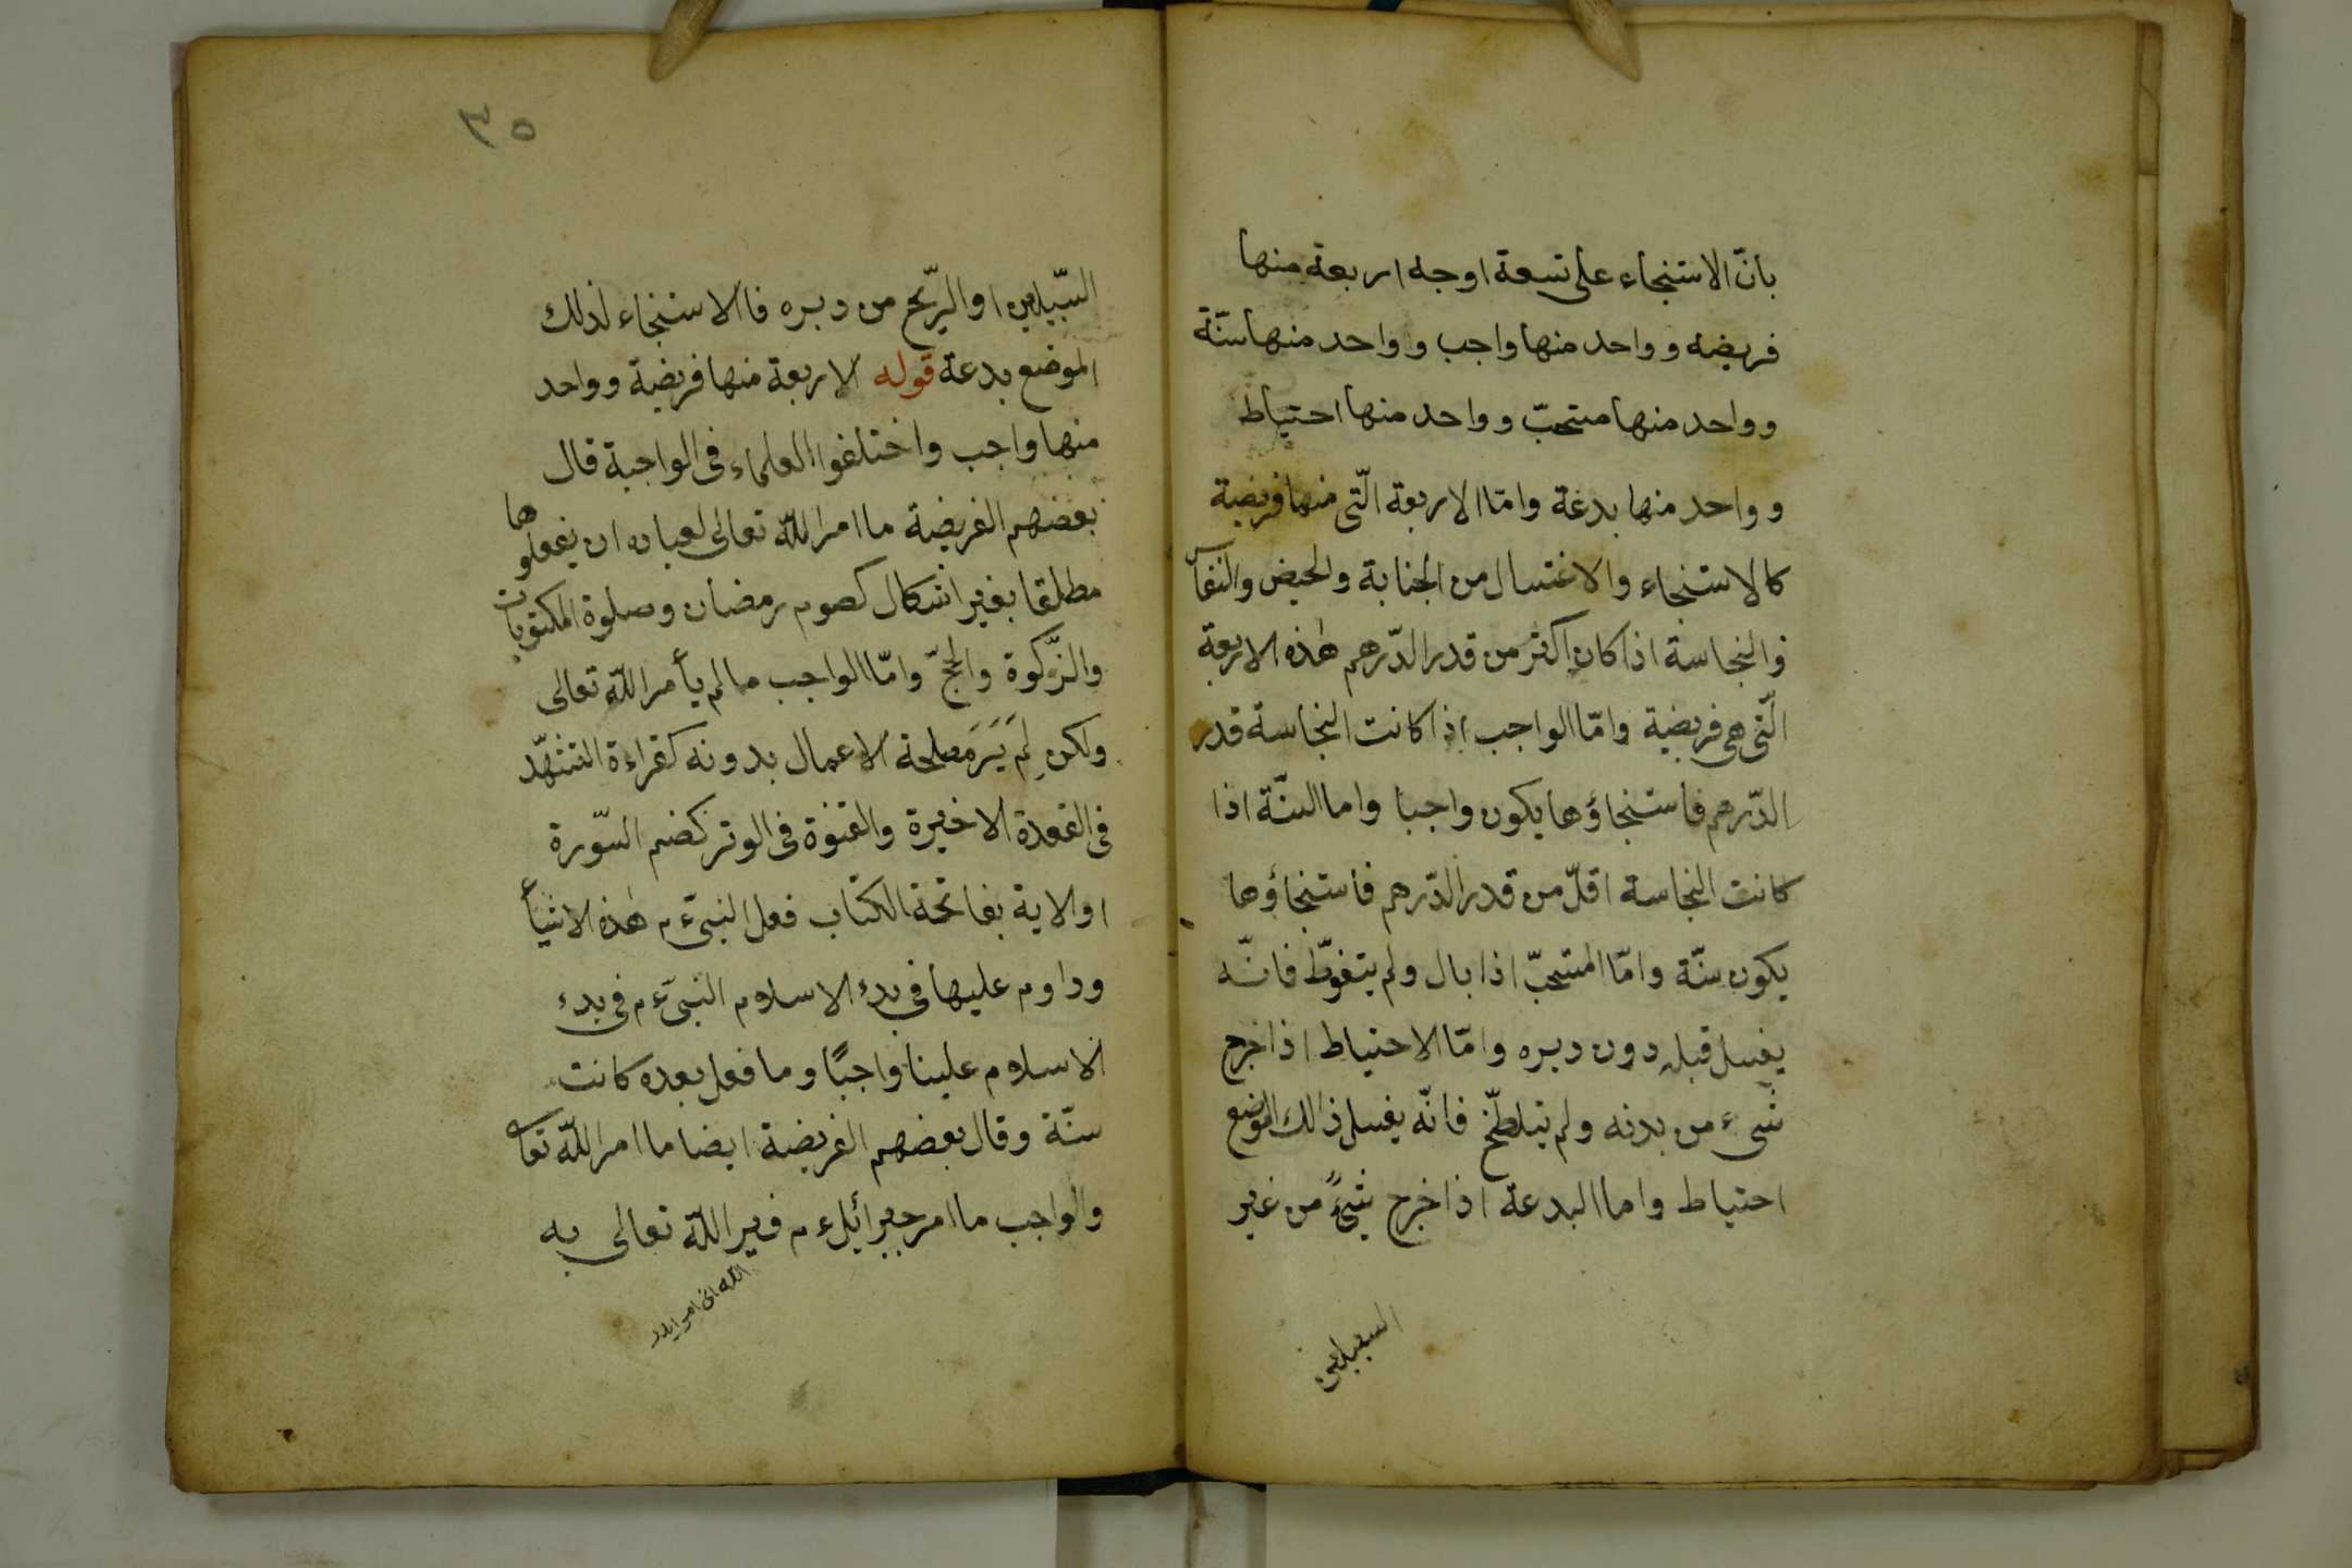 بانّ الاستنجاء على تسعة اوجه اربعة منها
فريضه وواحد منها واجب وواحد منها سنّة
وواحد منها مستحبّ وواحد منها احتياط
وواحد منها بدعة وامّا الاربعة الّتى منها فريضة
كالاستنجاء والاغتسال من الجنابة والحيض والنفآ
والنجاسة اذا كان اكثر من قدر الدّرهم هٰذه الاربعة
الّتى هى فريضية وامّا الواجب اذا كانت النجاسة قدر
الدّرهم فاستنجاؤها يكون واجبا واما السنّة اذا
كانت النجاسة اقلّ من قدر الدّرهم فاستنجاؤها
يكون سنّة وامّا المستحبّ اذا بال ولم يتغوّط فانّه
يغسل قبله دون دبره وامّا الاحتياط اذا خرج
شىء من بدنه ولم يتلطّخ فانّه يغسل ذالك الموضع
احتياط واما البدعة اذا خرج شئ من غير
السبيلين
٣٥
السّبيلين او الرّيح من دبره فاالاستنجاء لذلك
الموضع بدعة قوله الاربعة منها فريضية وواحد
منها واجب واختلفوا العلماء فى الواجبة قال
بعضهم الفريضية ما امر اللّه تعالى لعباده ان يفعلوها
مطلقا بغير اشكال كصوم رمضان وصلوة المكتوبات
والزّكوة والحجّ وامّا الواجب مالم يأمر اللّه تعالى
ولكن لم يَرَ مصلحة الاعمال بدونه كقراءة التشهّد
فى القعدة الاخيرة والقنوة فى الوتر كضم السّورة
او الاية بفاتحة الكتاب فعل النبىّ ءم هٰذه الاشيأ
وداوم عليها فى بدء الاسلام النبىّ ءم فى بدء
الاسلام علينا واجبًا وما فعل بعده كانت
سنّة وقال بعضهم الفريضية ايضا ما امر اللّه تعا
والواجب ما امر جبرائيل ءم فير اللّه تعالى به
اللّه